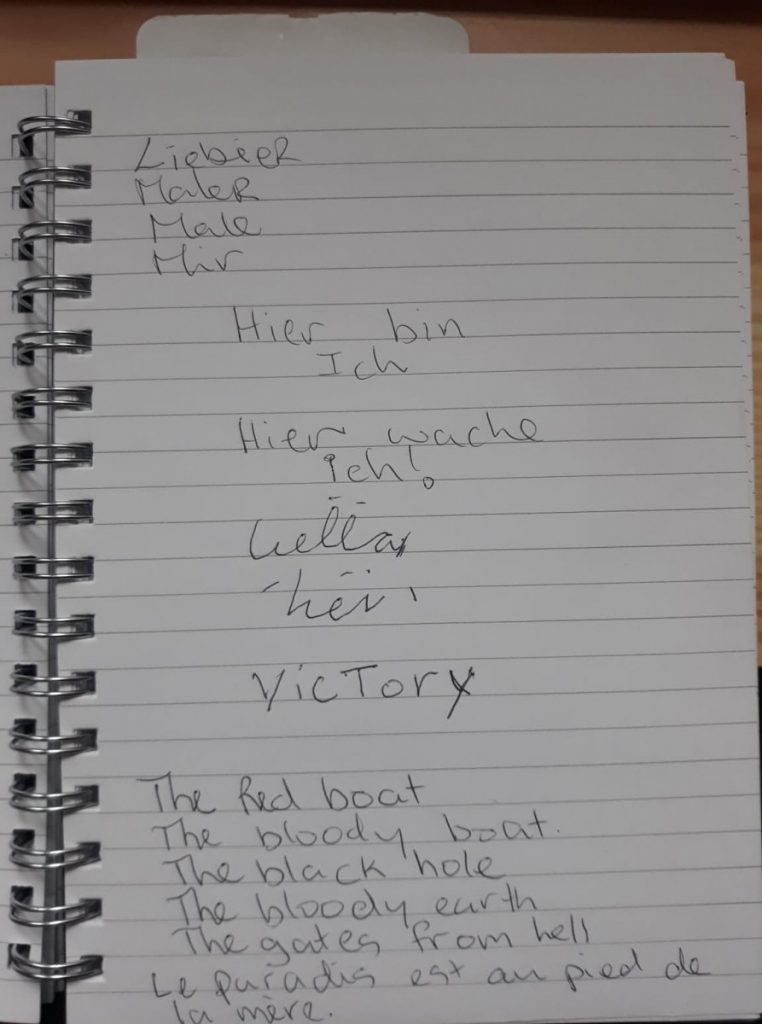 Liebier
Maler
Male
Mir
Hier bin
Ich
Hier wache
ich!
Victory
The Red boat
The bloody boat.
The black hole
The bloody earth
The gates from hell
Le paradis est au pied de
la mère.